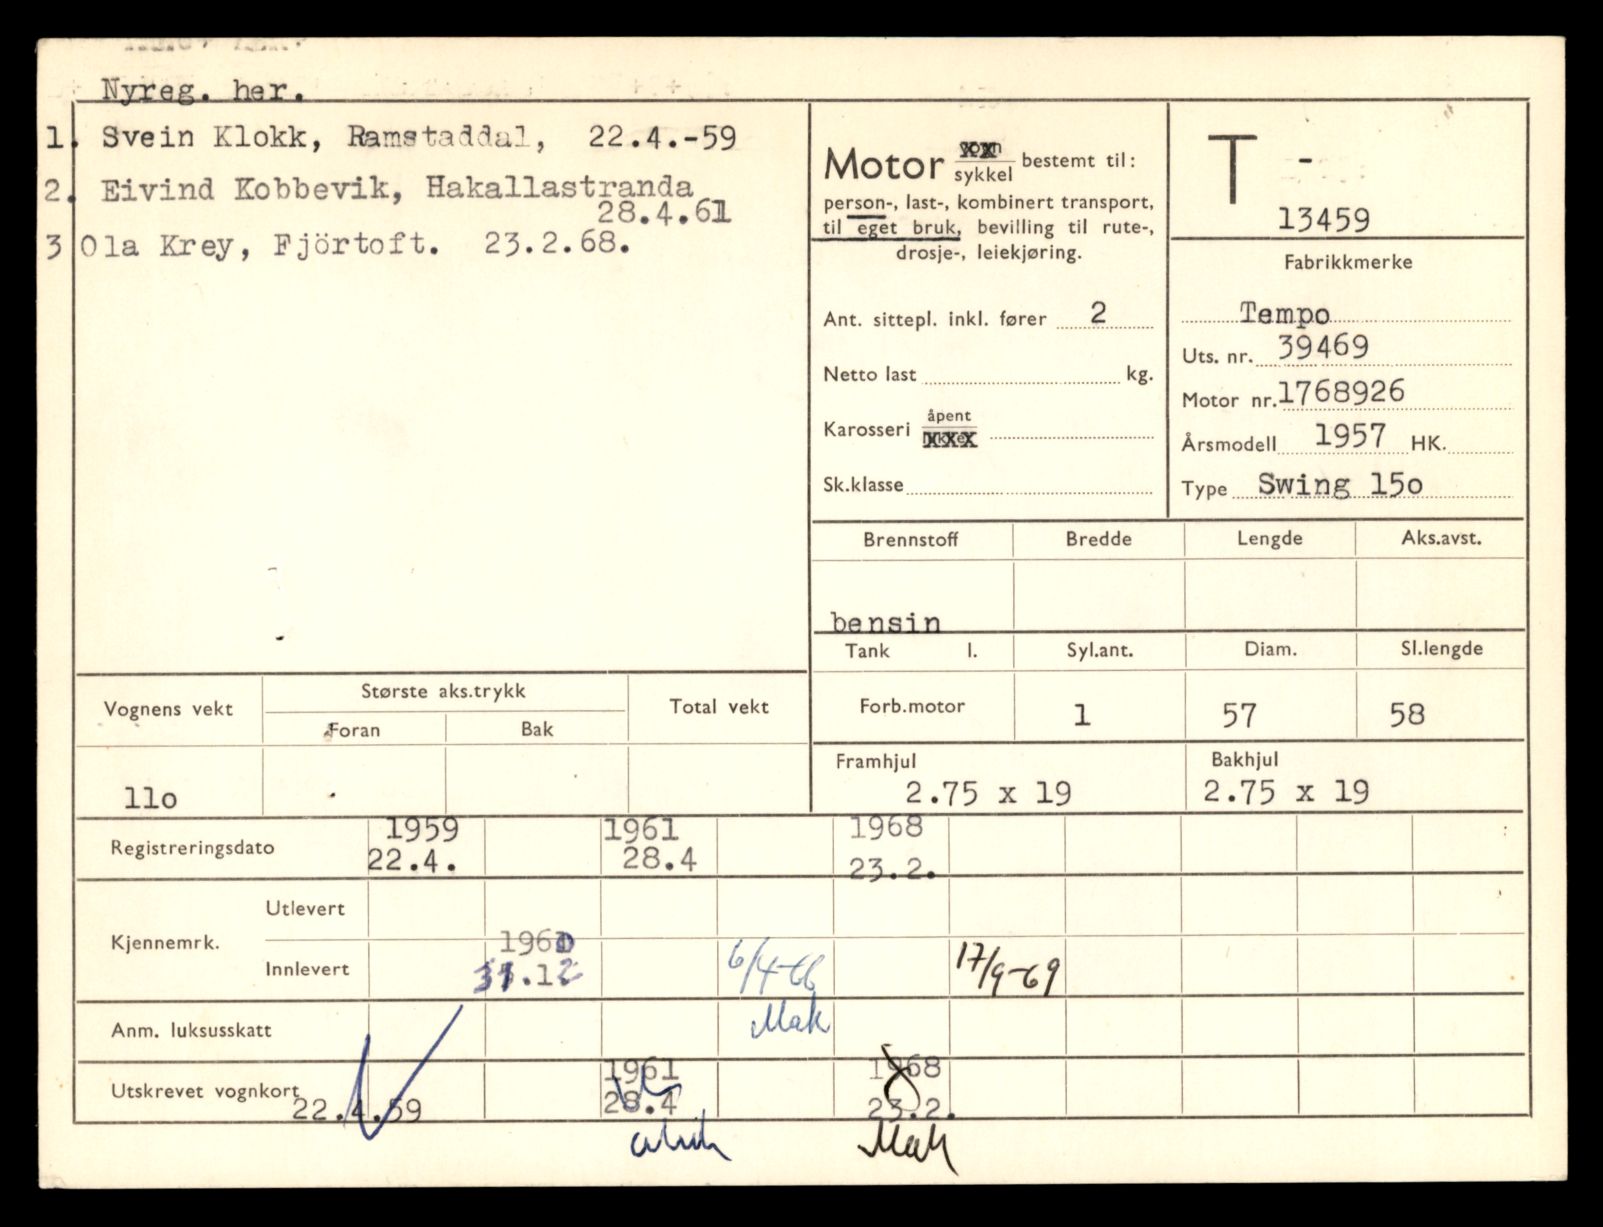 Nyreg. her.
1. Svein Klokk, Ramstaddal, 22.4.-59
2. Eivind Kobbevik, Hakallastranda
28.4.61
3 Ola Krey, Fjörtoft. 23.2.68.
Motor vogn sykkel bestemt til:
person-, last-, kombinert transport,
til eget bruk, bevilling til rute-,
drosje-, leiekjøring.
Ant. sittepl. inkl. fører 2
Netto last kg.
Karosseri åpent
Sk.klasse
T -
13459
Fabrikkmerke
Tempo
Uts. nr. 39469
Motor nr. 1768926
Årsmodell 1957 HK.
Type Swing 15o
Brennstoff Bredde Lengde Aks.avst.
bensin
Tank l. Syl.ant. Diam. Sl.lengde
Forb.motor 1 57 58
Framhjul Bakhjul
2.75 x 19 2.75 x 19
Vognens vekt Største aks.trykk Total vekt
Foran Bak
11o
Registreringsdato 1959 1961 1968
22.4. 28.4 23.2.
Kjennemrk. Utlevert
Innlevert 1960 31.12 6/4-66 17/9-69
Mak
Anm. luksusskatt
Utskrevet vognkort 22.4.59 1961 28.4 1968 23.2.
Mak